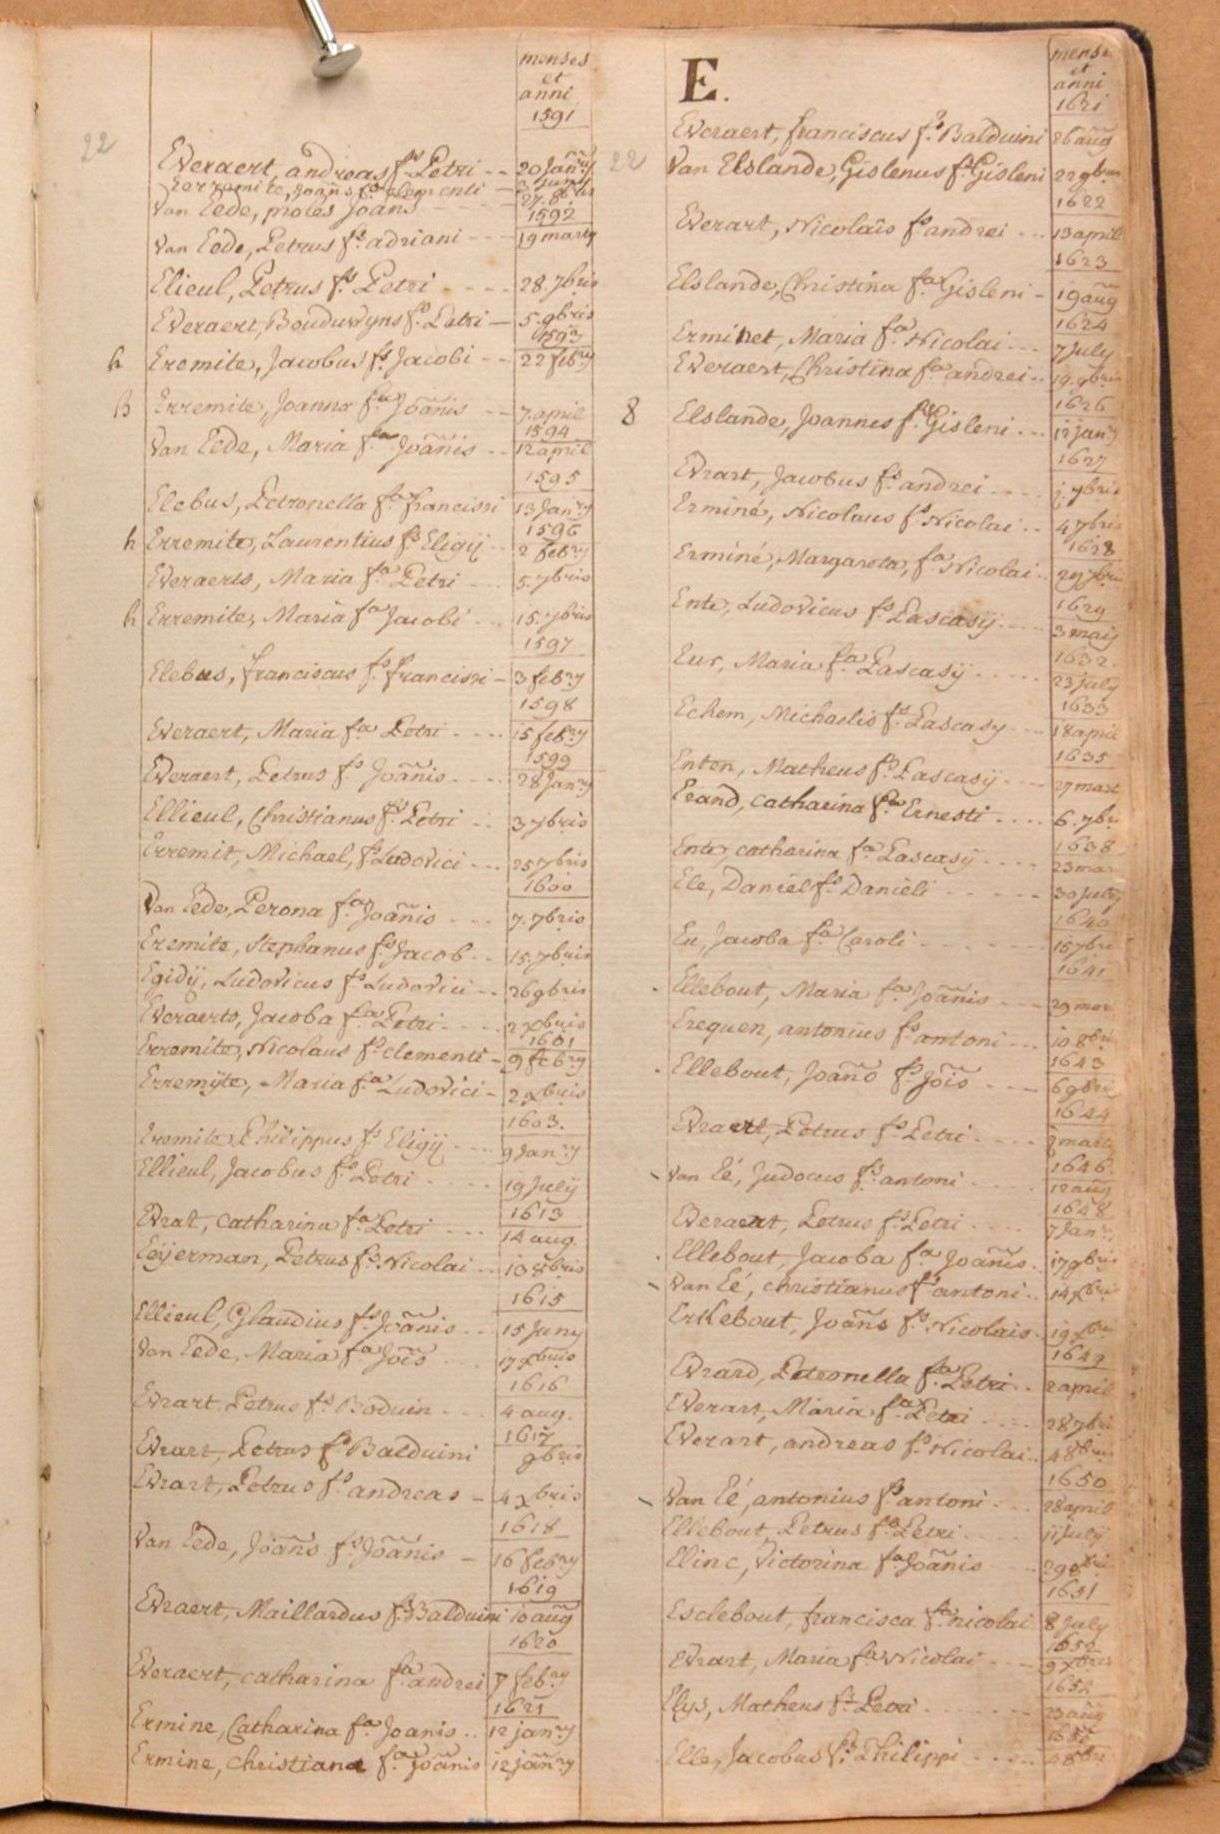 menses
et
anni
1591
22
Everaert, andreas fs Petri -- 20 Janry
Erremite, Joans fs clementi - 
Van Eede, proles Joans - - - 27. 8bris
1592
Van Eede, Petrus fs. adriani --- 19 marty
Elieul, Petrus fs. Petri - - - - 28. 7bris
Everaert, Bouduwyns fs. Petri - 5. 9bris
1593
h Eremite, Jacobus fs Jacobi -- 22 febry
B Erremite, Joanna fa Joānis -- 7. april
1594
Van Eede, Maria fa Joānis -- 12 april
1595
Elebus, Petronella fa francisci 13 Janry
1596
h Erremite, Laurentius fs Eligij -- 2 febry
Everaerts, Maria fa Petri --- 5. 7bris
h Erremite, Maria fa Jacobi --- 15. 7bris
1597
Elebus, franciscus fs. francisci - 3 febry
1598
Everaert, Maria fa Petri ---- 15 febry
1599
Everaert, Petrus fs Joānis ---- 28 Janry
Ellieul, Christianus fs Petri -- 3 7bris
Erremit, Michael, fs Ludovici --- 25 7bris
1600
Van Eede, Perona fa Joānis --- 7. 7bris
Eremite, Stephanus fs Jacob -- 15. 7bris
Egidij, Ludovicus fs Ludovici -- 26 9bris
Everaerts, Jacoba fa Petri ---- 2 xbris
1601
Erremite, Nicolaus fs clementi - 9 febry
Erremyte, Maria fa Ludovici - 2 xbris
1603.
Eremite Philippus fs Eligij ---- 9 Janry
Ellieul, Jacobus fs Petri ---- 19 July
1613
Evrat, catharina fa Petri --- 14 aug.
Eyerman, Petrus fs Nicolai -- 10 8bris
1615
Ellieul, Glaudius fs Joānis -- 15 Juny
Van Eede, Maria fa Jōis --- 17 xbris
1616
Evrart Petrus fs Boduin --- 4 aug.
1617
Evrart, Petrus fs Balduini 9bris
Evrart, Petrus fs andreas - 4 xbris
1618
Van Eede, Joāns fs Joānis - 16 febry
1619
Evraert, Maillardus fs Balduini 10 aug
1620
Everaert, catharina fa andrei 7 febry
1621
Ermine, Catharina fa Joanis .. 12 janry
Ermine, christiana fa Joānis 12 janry
E.
mens
et
anni
1621
Everaert, franciscus fs Balduini 26 aug
22 Van Elslande, Gislenus fs Gisleni 22 9bris
1622
Everart, Nicolaūs fs andrei --- 13 april
1623
Elslande, Christina fa Gisleni - 19 aug
1624
Erminet, Maria fa Nicolai --- 7 July
Everaert, Christina fa andrei -- 19. 9bris
1626
8 Elslande, Joannes fs Gisleni --- 12 jany
1627
Evrart, Jacobus fs andrei ---- 9bris
Erminé, Nicolaus fs Nicolai -- 4 7bris
1628
Erminé, Margareta, fa Nicolai -- 29 7bris
1629
Ente, Ludovicus fs Pascasij ---- 3 maij
1632
Eur, Maria fa Pascasij ----- 23 july
1633
Echem, Michaelis fs Pascasy --- 18 april
1635
Enten, Matheus fs Pascasij --- 27 mart
Erand, catharina fa Ernesti ---- 6. 7bris
1638
Ente, catharina fa Pascasij ---- 23 mar
Ele, Daniel fs Danieli ------ 30 july
1640
Eu, Jacoba fa Caroli ------- 15 7bri
1641
Ellebout, Maria fa Joānis --- 29 mar
Erequen, antonius fs antoni --- 10 8bris
1643
Ellebout, Joāno fs Jōis ---- 6 9bri
1644
Evraert, Petrus fs Petri ----- marty
1646
Van Eé, Judocus fs antoni ---- 12 aug
1648
Everaert, Petrus fs Petri ---- 7 Jan
Ellebout, Jacoba fa Joānis. 17 9bris
Van Eé, christianus fs antoni .. 14 xbris
Erkebout, Joāns fs Nicolais. 19 xbris
1649
Evrard, Petronella fa Petri -- 2 april
Everart, Maria fa Petri ---- 28 7bri
Everart, andreas fs Nicolai .. 4 8bris
1650
Van Eé, antonius fs antoni --- 28 april
Ellebout, Petrus fs Petri ---- 11 july
Elinc, Victorina fa Joānis --- 29 8bri
1651
Esclebout, francisca fa nicolai 8 July
1652
Evrart, Maria fa Nicolai --- 9 xbris
Elys, Matheus fs Petri ----- 23 aug
Elle, Jacobus fs Philippi ----- 4 8bri